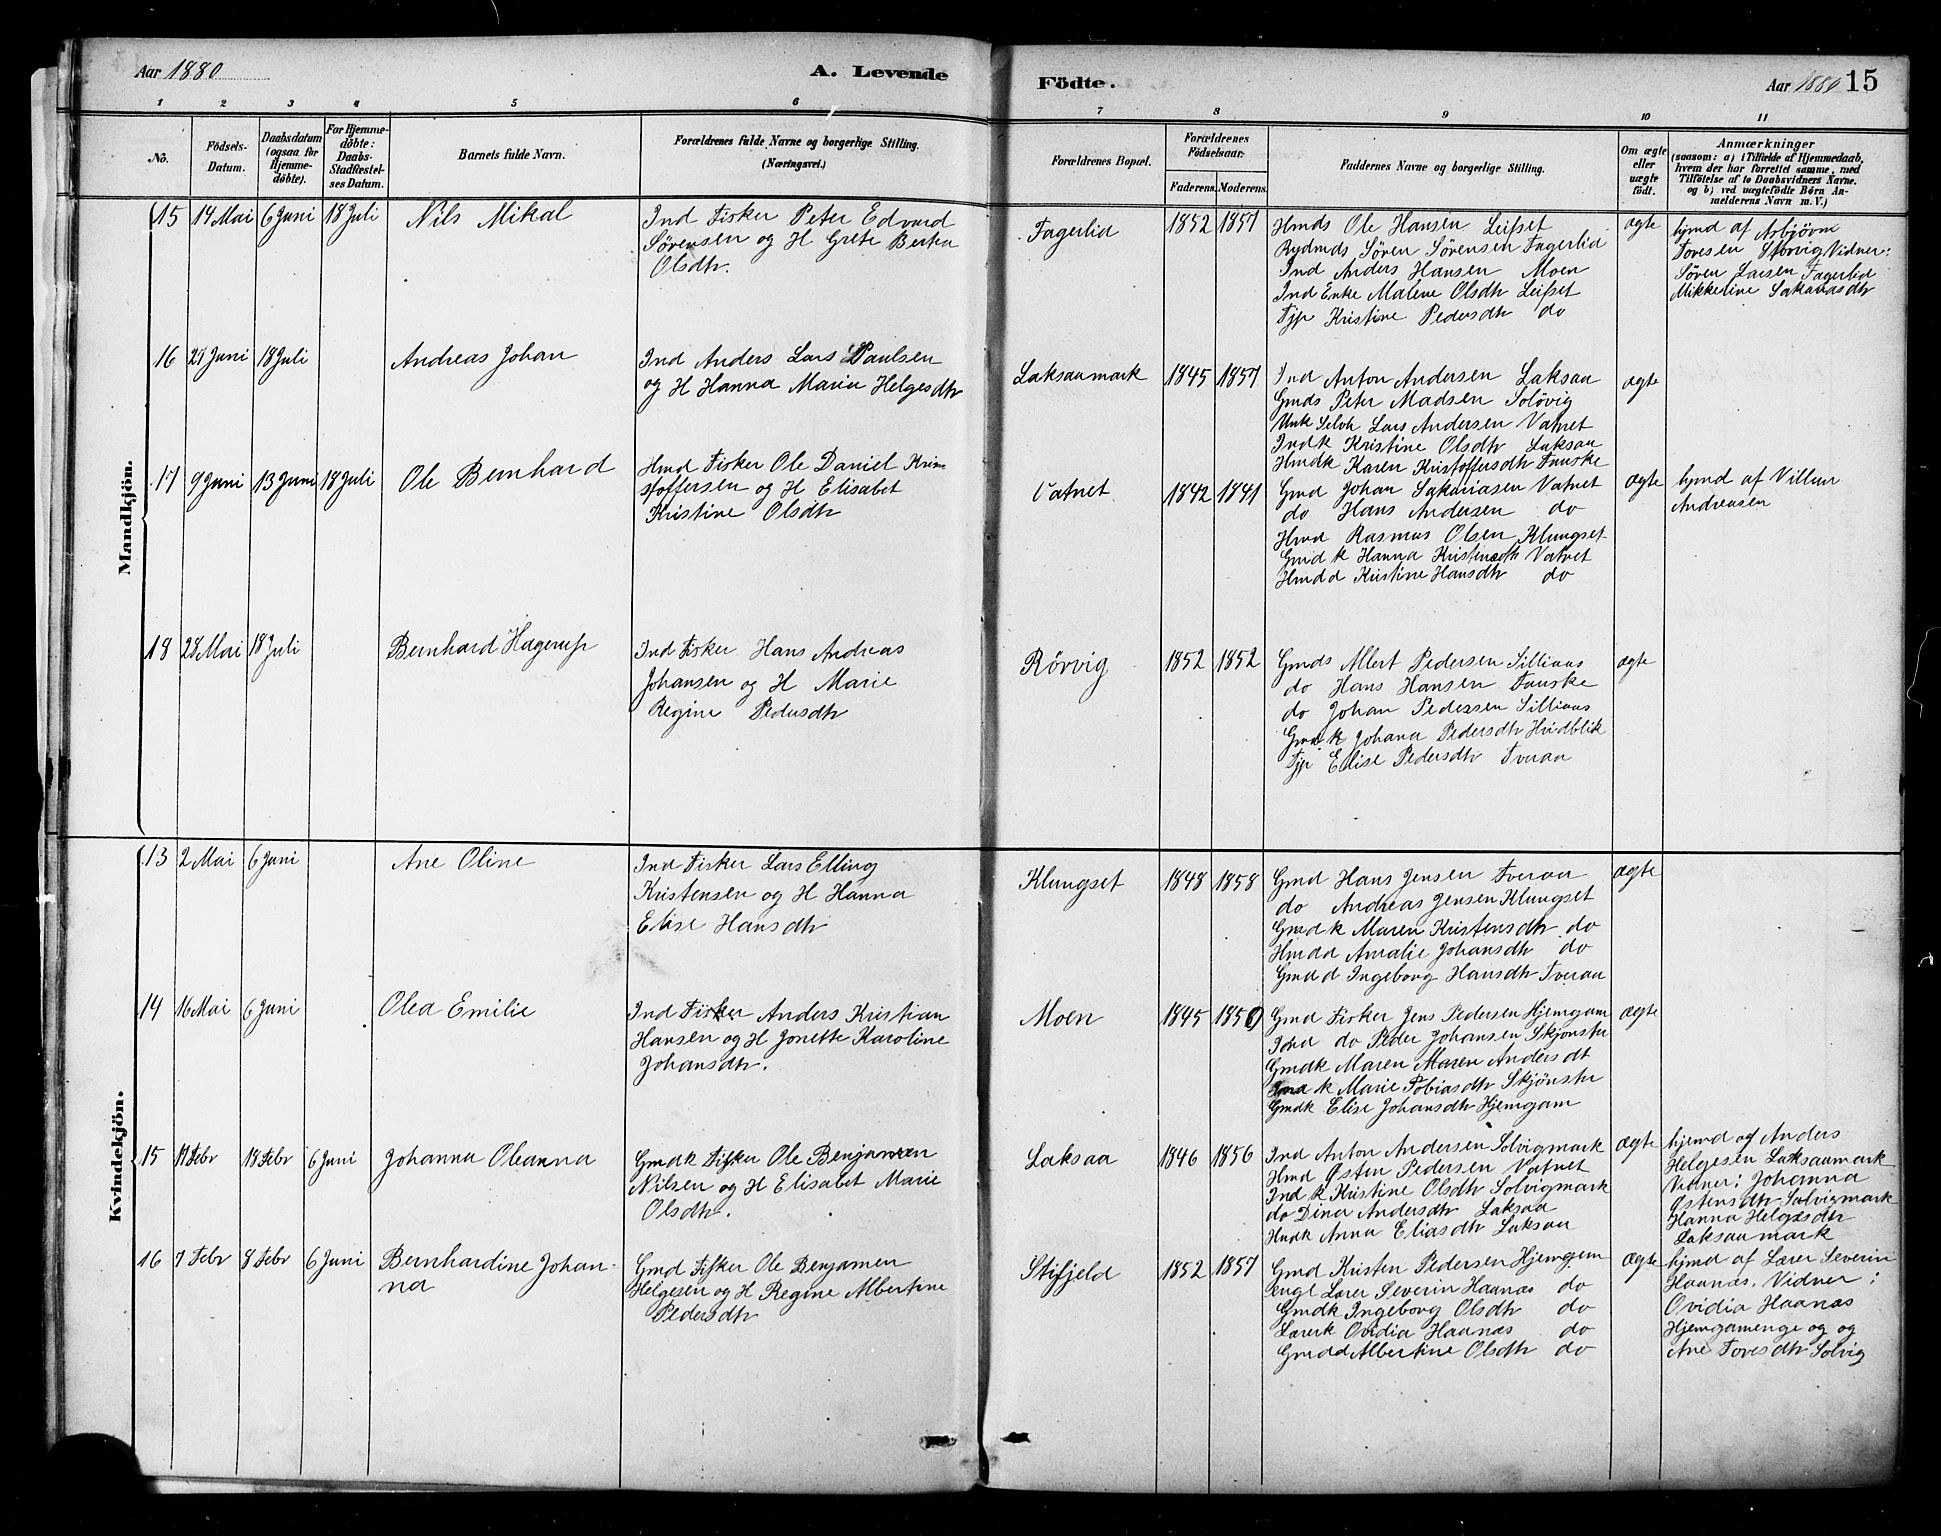 Aar 1880
A. Levende
Födte.
Aar 1880 15
1 2 3 4 5 6 7 8 9 10 11
No.
Födsels-
Datum.
Daabsdatum
(ogsaa for
Hjemme-
döbte).
For Hjemme-
döbte:
Daabs-
Stadfæstel-
ses Datum.
Barnets fulde Navn.
Forældrenes fulde Navne og borgerlige Stilling.
(Næringsvei.)
Forældrenes Bopæl.
Forældrenes
Födselsaar:
Faderens. Moderens.
Faddernes Navne og borgerlige Stilling.
Om ægte
eller
uægte
födt.
Anmærkninger
(saasom: a) i Tilfælde af Hjemmedaab,
hvem der har forrettet samme, med
Tilföielse af to Daabsvidners Navne.
og b) ved uægtefödte Börn An-
melderens Navn m. V.)
Mandkjön.
15 14 Mai 6 Juni 18 Juli Nils Mikal
Ind Fisker Peter Edvard
Sörensen og H Grete Berta
Olsdtr.
Fagerlid 1852 1857
Hmds Ole Hansen Leifset
Rydmds Sören Sörensen Fagerlid
Ind Anders Hansen Moen
Ind Enke Malene Olsdtr Leifset
Tjp Kristine Pedersdtr do
ægte
hjmd af Asbjörn
Toresen Storvig Vidner:
Sören Larsen Fagerlid
Mikkeline Sakariasdtr
16 27 Juni 18 Juli Andreas Johan
Ind Anders Lars Paulsen
og H Hanna Maria Helgesdtr
Laksaamark 1845 1857
Ind Anton Andersen Laksaa
Gmds Peter Madsen Solövig
Unk Selvh Lars Andersen Vatnet
Indk Kristine Olsdtr Laksaa
Hmdk Karen Kristoffersdtr Fauske
ægte
17 9 Juni 13 Juni 18 Juli Ole Bernhard
Hmd Fisker Ole Daniel Kri-
stoffersen og H Elisabet
Kristine Olsdtr
Vatnet 1842 1841
Gmd Johan Sakariasen Vatnet
do Hans Andersen do
Hmd Rasmus Olsen Klungset
Gmd k Hanna Kristensdtr Vatnet
Hmdd Kristine Hansdtr do
ægte
hjmd af Villum
Andreasen
18 28 Mai 18 Juli Bernhard Hagerup
Ind Fisker Hans Andreas
Johansen og H Marie
Regine Pedersdtr
Rörvig 1852 1852
Gmds Albert Pedersen Silliaas
do Hans Hansen Fauske
do Johan Pedersen Silliaas
Gmd k Johana Pedersdtr Hvidblik
Tjp Elise Pedersdtr Tveraa
ægte
Kvindekjön.
13 2 Mai 6 Juni Ane Oline
Ind Fisker Lars Elling
Kristensen og H Hanna
Elise Hansdtr
Klungset 1848 1858
Gmd Hans Jensen Tveraa
do Andreas Jensen Klungset
Gmdk Maren Kristensdtr do
Hmdd Amalie Johansdtr do
Gmd d Ingeborg Hansdtr Tveraa
ægte
14 16 Mai 6 Juni Olea Emilie
Ind Fisker Anders Kristian
Hansen og H Jonette Karoline
Johansdtr.
Moen 1845 1850
Gmd Fisker Jens Pedersen Hjemgam
Ind do Peder Johansen Skjönstu
Gmdk Maren Maren Anders dt
Gmd k Marie Tobiasdtr Skjönstu
Gmdk Elise Johansdtr Hjemgam
ægte
15 17 Febr 18 Febr 6 Juni Johanna Oleanna
Gmdk Fisker Ole Benjamin
Nilsen og H Elisabet Marie
Olsdtr.
Laksaa 1846 1856
Ind Anton Andersen Solvigmark
Hmd Østen Pedersen Vatnet
Ind k Kristine Olsdtr Solvigmark
do Dina Andersdtr Laksaa
Hmdk Anna Eliasdtr Laksaa
ægte
hjemd af Anders
Helgesen Laksaamark
Vidner: Johanna
Østensdtr Solvigmark
Hanna Helgesdtr
Laksaamark
16 7 Febr 8 Febr 6 Juni Bernhardine Johan-
na
Gmd Fisker Ole Benjamen
Helgesen og H Regine Albertine
Pedersdtr
Stifjeld 1852 1857
Gmd Kristen Pedersen Hjemgam
Lærer Severin Haanæs do
Gmdk Ingeborg Olsdtr do
Lærerk Ovidia Haanæs do
Gmdd Albertine Olsdtr do
ægte
hjmd af Lærer Severin
Haanæs. Vidner:
Ovidia Haanæs
Hjemgamenge og og
Ane Toresdtr Solvig